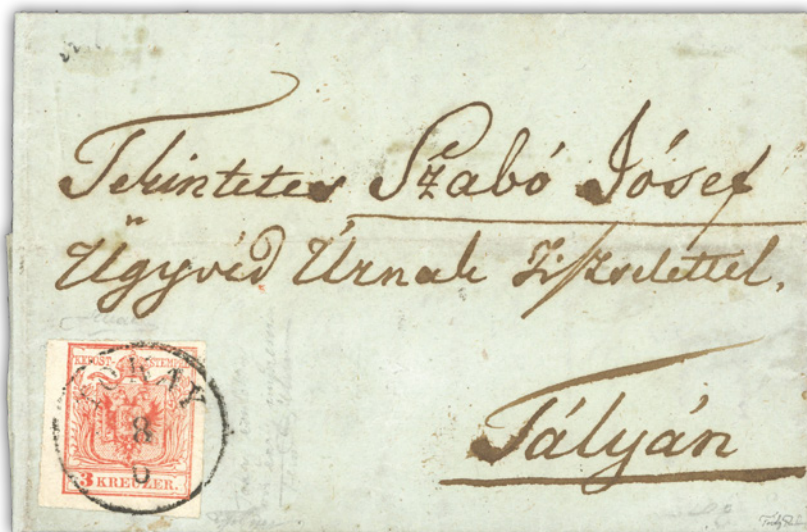 Tekintetes Szabó Jósef
Ügyvéd Úrnak Tisztelettel.
Tályán
KKPOST-STEMPEL
TOKAY
8
3 KREUZER.